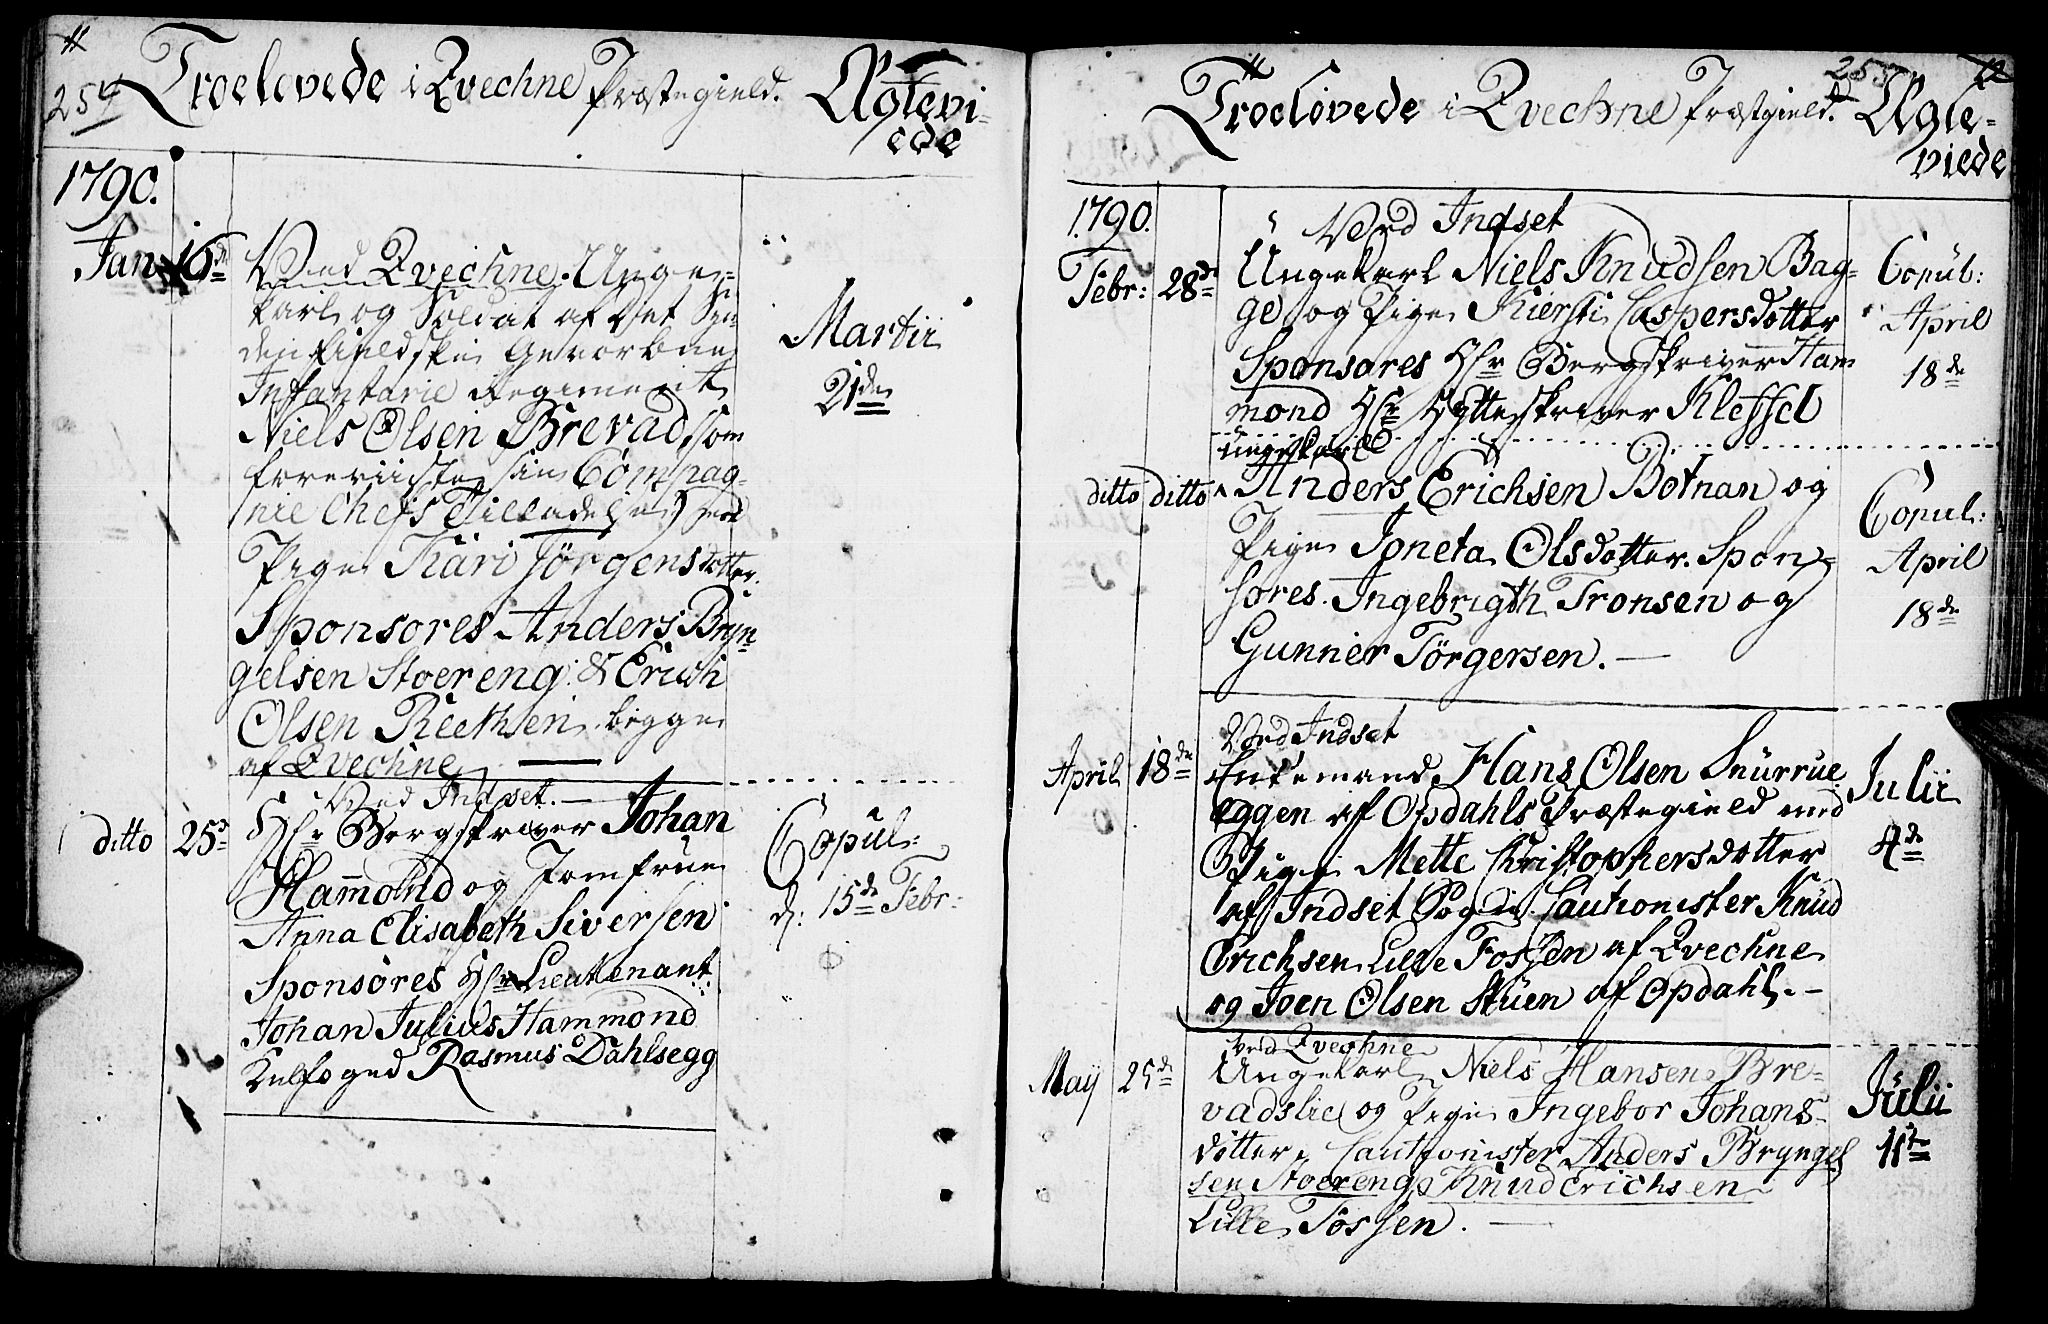 11
254
Troelovede i Qvechne Præstegield.
Ægtevi-
ede
1790.
Jan 16de
Ved Qvechne. Unge-
karl og Soldat af det Søn-
denfieldske Gevorbne
Infantarie Regiment
Niels Olsen Brevad, som
foreviiste sin Compag-
nie Chefs Tilladelse, med
Pige Kari Jörgensdotter.
Sponsores Anders Bryn-
gelsen Stoereng & Erich
Olsen Reethsen begge
af Qvechne
Martii
21de
Ved Indset.
ditto 25de
Hr Bergskriver Johan
Hammond og Jomfrue
Anna Elisabeth Siversen
Sponsores Hr Lieutenant
Johan Julius Hammond
Rasmus Dahlsegg
Copul:
d: 15de Febr:
255
12
Troelovede i Qvechne Præstgield.
Ægte-
viede
1790.
Ved Indset
Febr: 28de
Ungekarl Niels Knudsen Bag-
ge og Pige Kiersti Caspersdotter
Sponsores Hr Bergskriver Ham
mond Hr Hytteskriver Kleffel
Copul:
April
18de
Ungekarl
ditto ditto
Anders Erichsen Botnan og
Pige Joneta Olsdotter. Spon-
sores. Ingebrigth Tronsen og
Gunner Törgersen.
Copul:
April
18de
Ved Indset
April 18de
Enkemand Hans Olsen Snurrue
eggen af Opdahls Præstegield med
Pige Mette Christophersdotter
af Indset Sogn. Cautionister Knud
Erichsen Lille Fossen af Qvechne
og Joen Olsen Stuen af Opdahl.
Julii
4de
Ved Qvechne
Maij 25de
Ungekarl Niels Hansen Bre-
vadslie og Pige Ingebor Johans-
dotter, Cautionister Anders Bryngel
sen Stoereng, Knud Erichsen
Lille Fossen.
Julii
11te